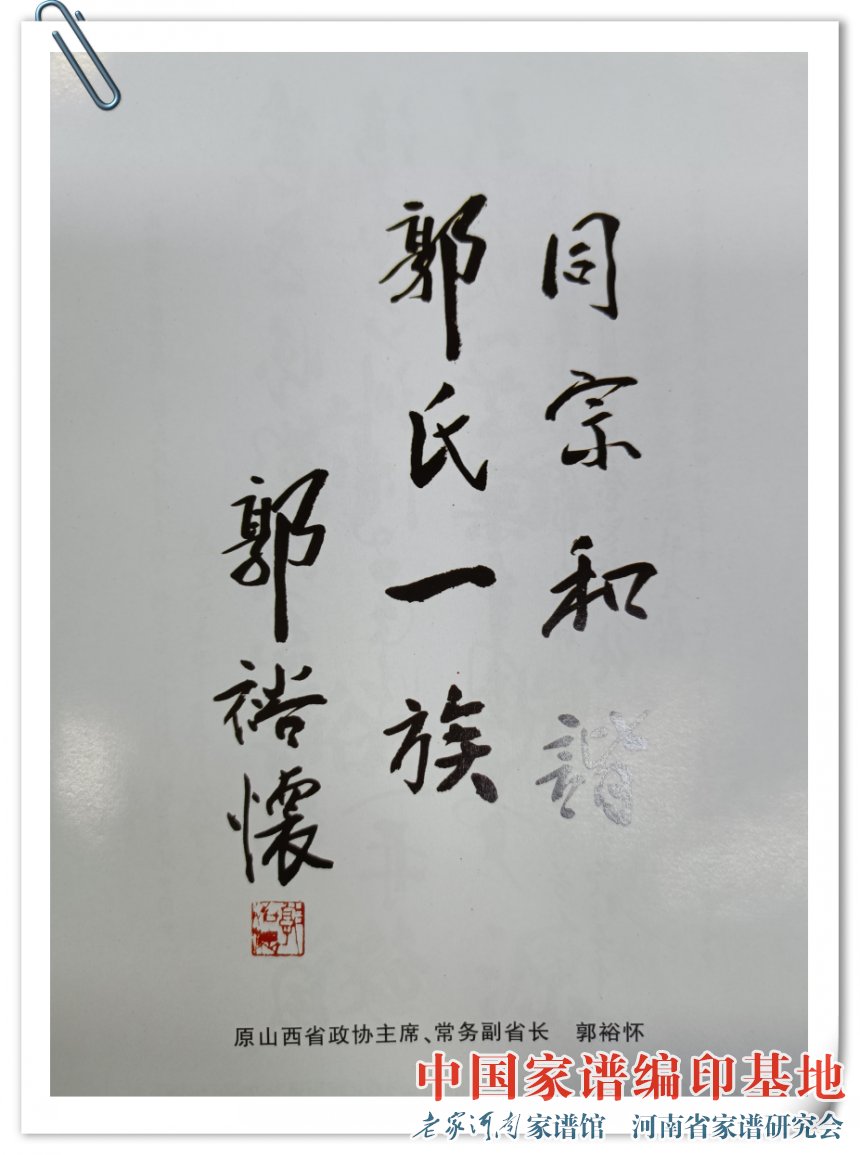 同宗和諧
郭氏一族
郭裕懷
原山西省政协主席、常务副省长 郭裕怀
中国家谱编印基地
老家河南家谱馆 河南省家谱研究会